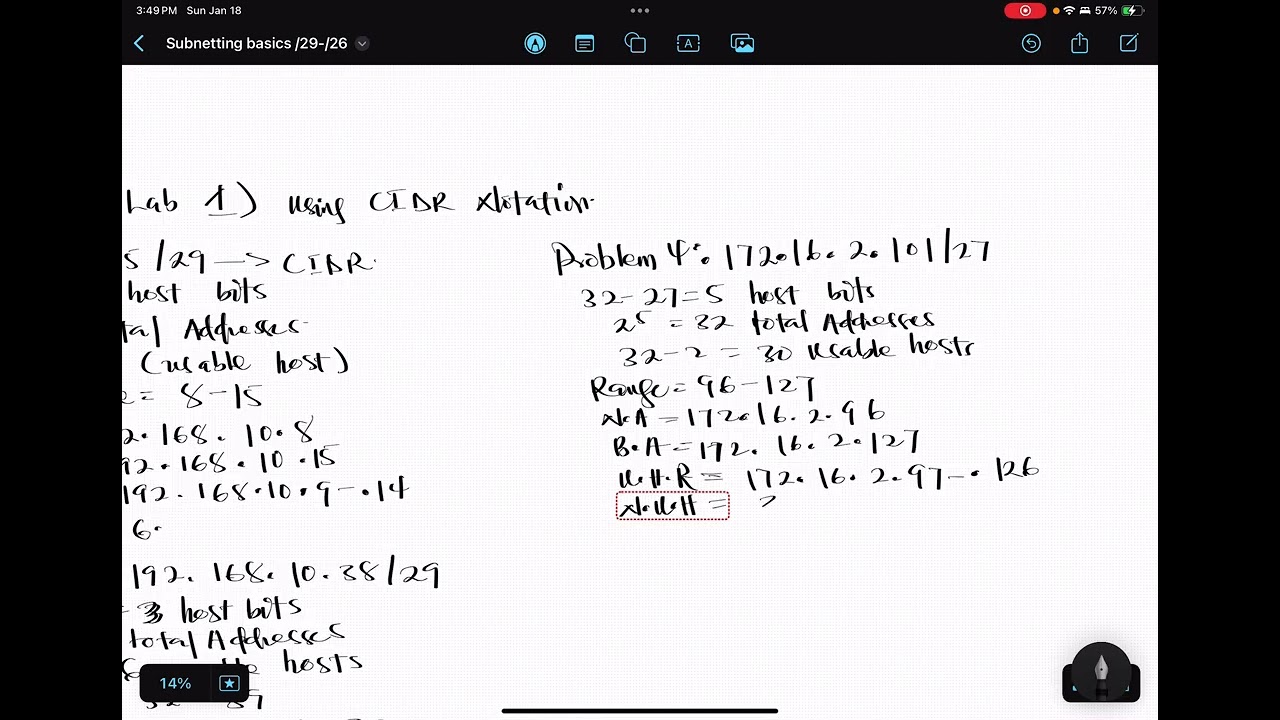 3:49 PM Sun Jan 18
57%
Subnetting basics /29-/26
Lab 1) using CIDR Notation
5 /29 -> CIDR
host bits
tal Addresses
(usable host)
= 8-15
2.168.10.8
92.168.10.15
192.168.10.9-.14
6.
192.168.10.38/29
3 host bits
total Addresses
hosts
Problem 4: 172.16.2.101/27
32-27=5 host bits
2^5 = 32 total Addresses
32-2 = 30 usable hosts
Range = 96-127
N.A = 172.16.2.96
B.A = 172.16.2.127
U.H.R = 172.16.2.97-.126
N.U.H =
14%